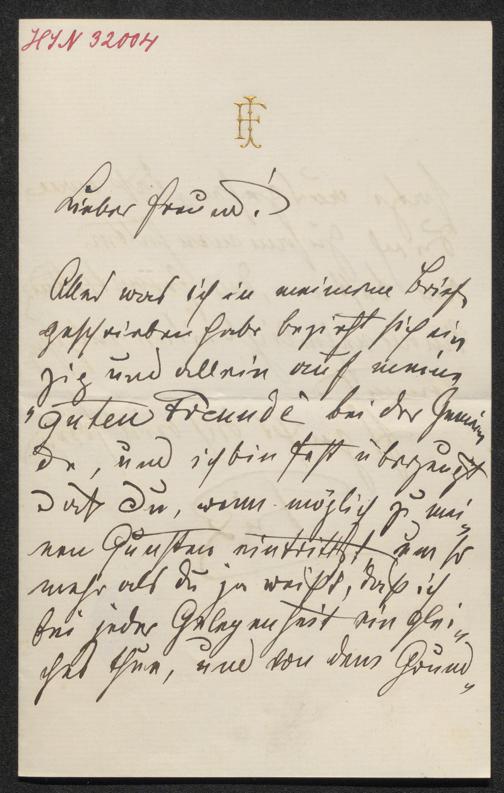 HIN 32004
Lieber Freund!
Alles was ich in meinem Brief
geschrieben habe bezieht sich ein
zig und allein auf meine
"guten Freunde" bei der Gemein
de, und ich bin fest überzeugt
daß Du, wenn möglich zu mei„
nen Gunsten eintrittst, um so
mehr als du ja weißt, daß ich
bei jeder Gelegenheit ein glei„
ches thue, und von dem Grund„